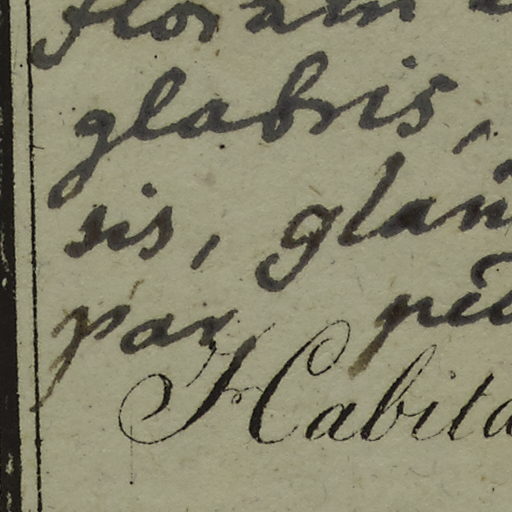 floram
glabris,
sis, glan
par pil
Habita